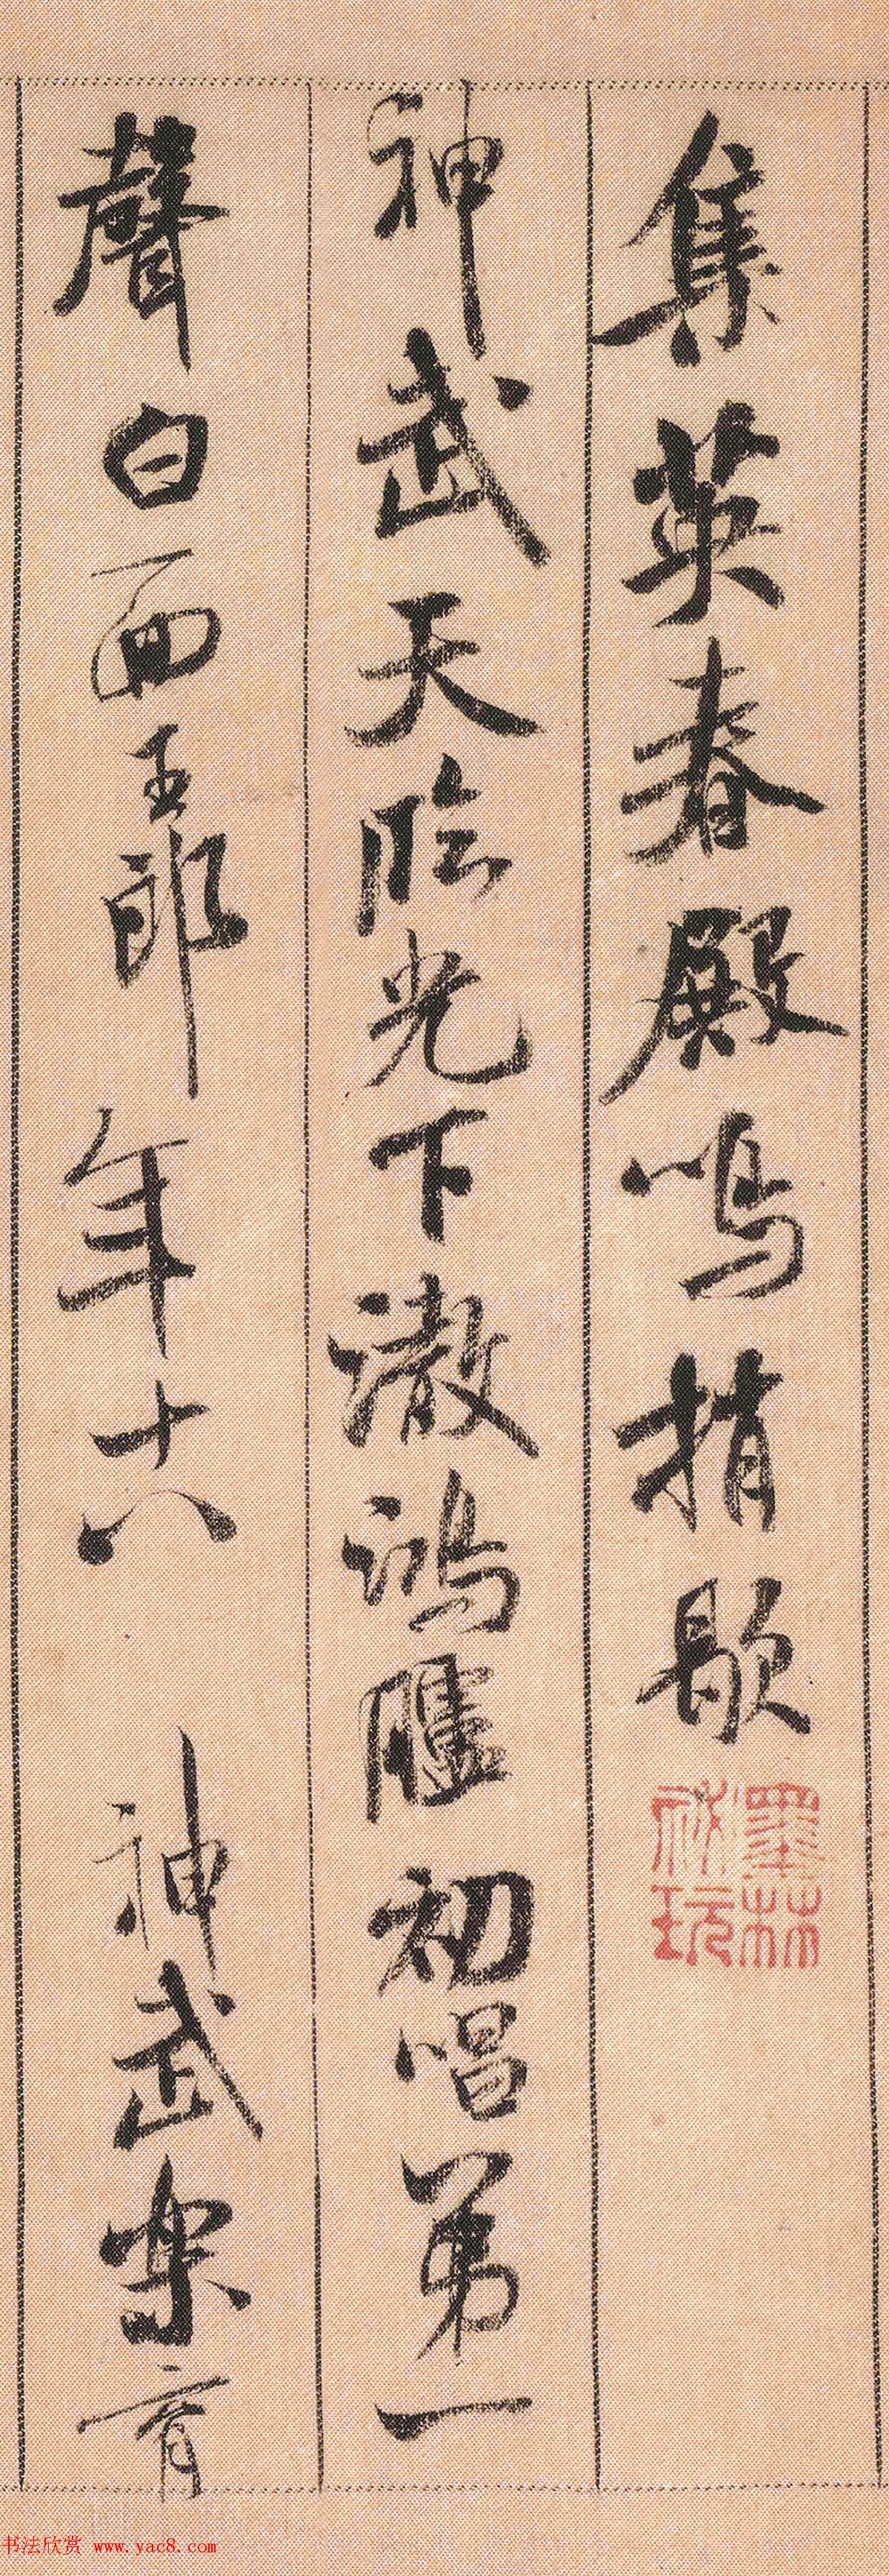 集英春殿鳴捎歇
神武天臨光下澈鴻臚初唱第一
聲白面玉郎年十八 神武樂育
墨林
祕玩
书法欣赏 www.yac8.com